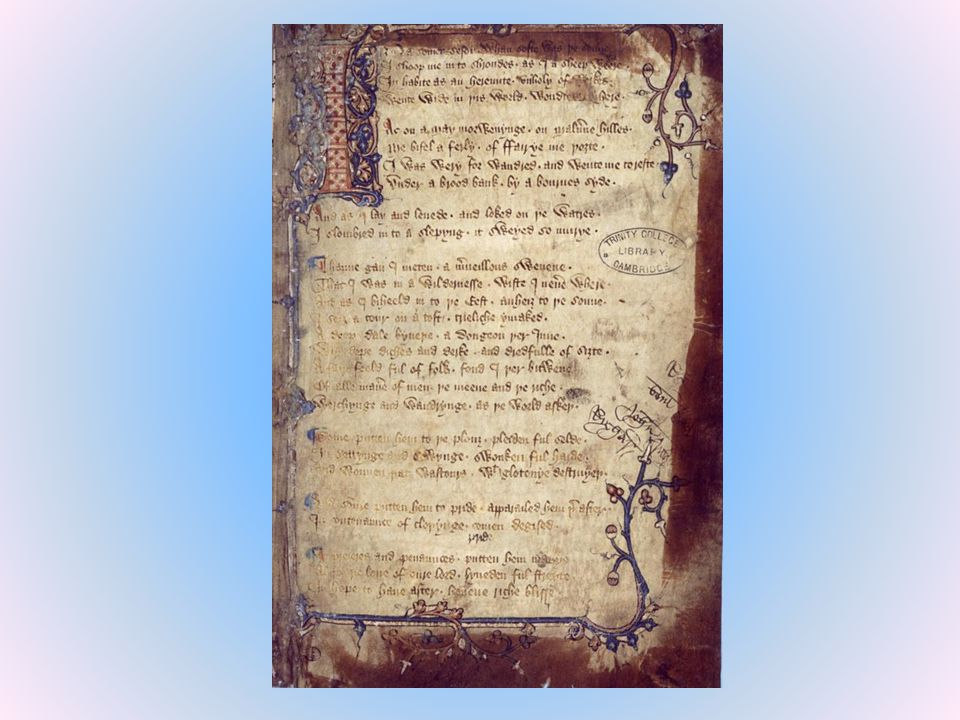 In a somer seson whan softe was þe sonne
I shoop me in to shroudes · as I a sheep weere ·
In habite as an heremite · vnholy of werkes
wente wide in þis world · wondres here ·
Ac on a may morwenynge · on maluerne hilles ·
Me bifel a ferly · of ffairye me þoȝte ·
I was wery for wandred · and wente me to reste
Vnder a brood bank · by a bournes syde ·
And as I lay and lenede · and loked on þe watres ·
I slombred in to a slepyng · it sweyed so murye ·
Thanne gan I meten · a merueillous sweuene ·
That I was in a wildernesse · wiste I neuere where ·
And as I biheeld in to þe Est · an heiȝ to þe sonne ·
I seiȝ a tour on a toft · trieliche ymaked ·
A deep dale byneþe · a dongeon þer Inne ·
Wiþ depe diches and derke · and dredfulle of siȝte ·
A fair feeld ful of folk · fond I þer bitwene
Of alle manere of men · þe meene and þe riche ·
Werchynge and wandrynge · as þe world askeþ ·
Some putten hem to þe plouȝ · pleiden ful selde ·
In settynge and sowynge · swonken ful harde ·
And wonnen þat wastours · wiþ glotonye destruyeþ ·
And some putten hem to pride · apparailed hem þer after ·
In contenaunce of cloþynge · comen degised ·
pride
In preieres and penaunces · putten hem manye
Al for loue of oure lord · lyueden ful streyte
In hope to haue after · heuene riche blisse
TRINITY COLLEGE
LIBRARY
CAMBRIDGE